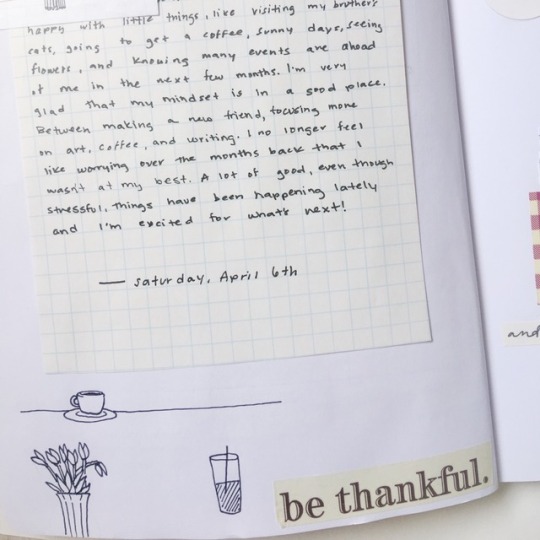 happy with little things, like visiting my brother's
cats, going to get a coffee, sunny days, seeing
flowers, and knowing many events are ahead
of me in the next few months. I'm very
glad that my mindset is in a good place.
Between making a new friend, focusing more
on art, coffee, and writing. I no longer feel
like worrying over the months back that I
wasn't at my best. A lot of good, even though
stressful, things have been happening lately
and I'm excited for what's next!
— Saturday, April 6th
be thankful.
and